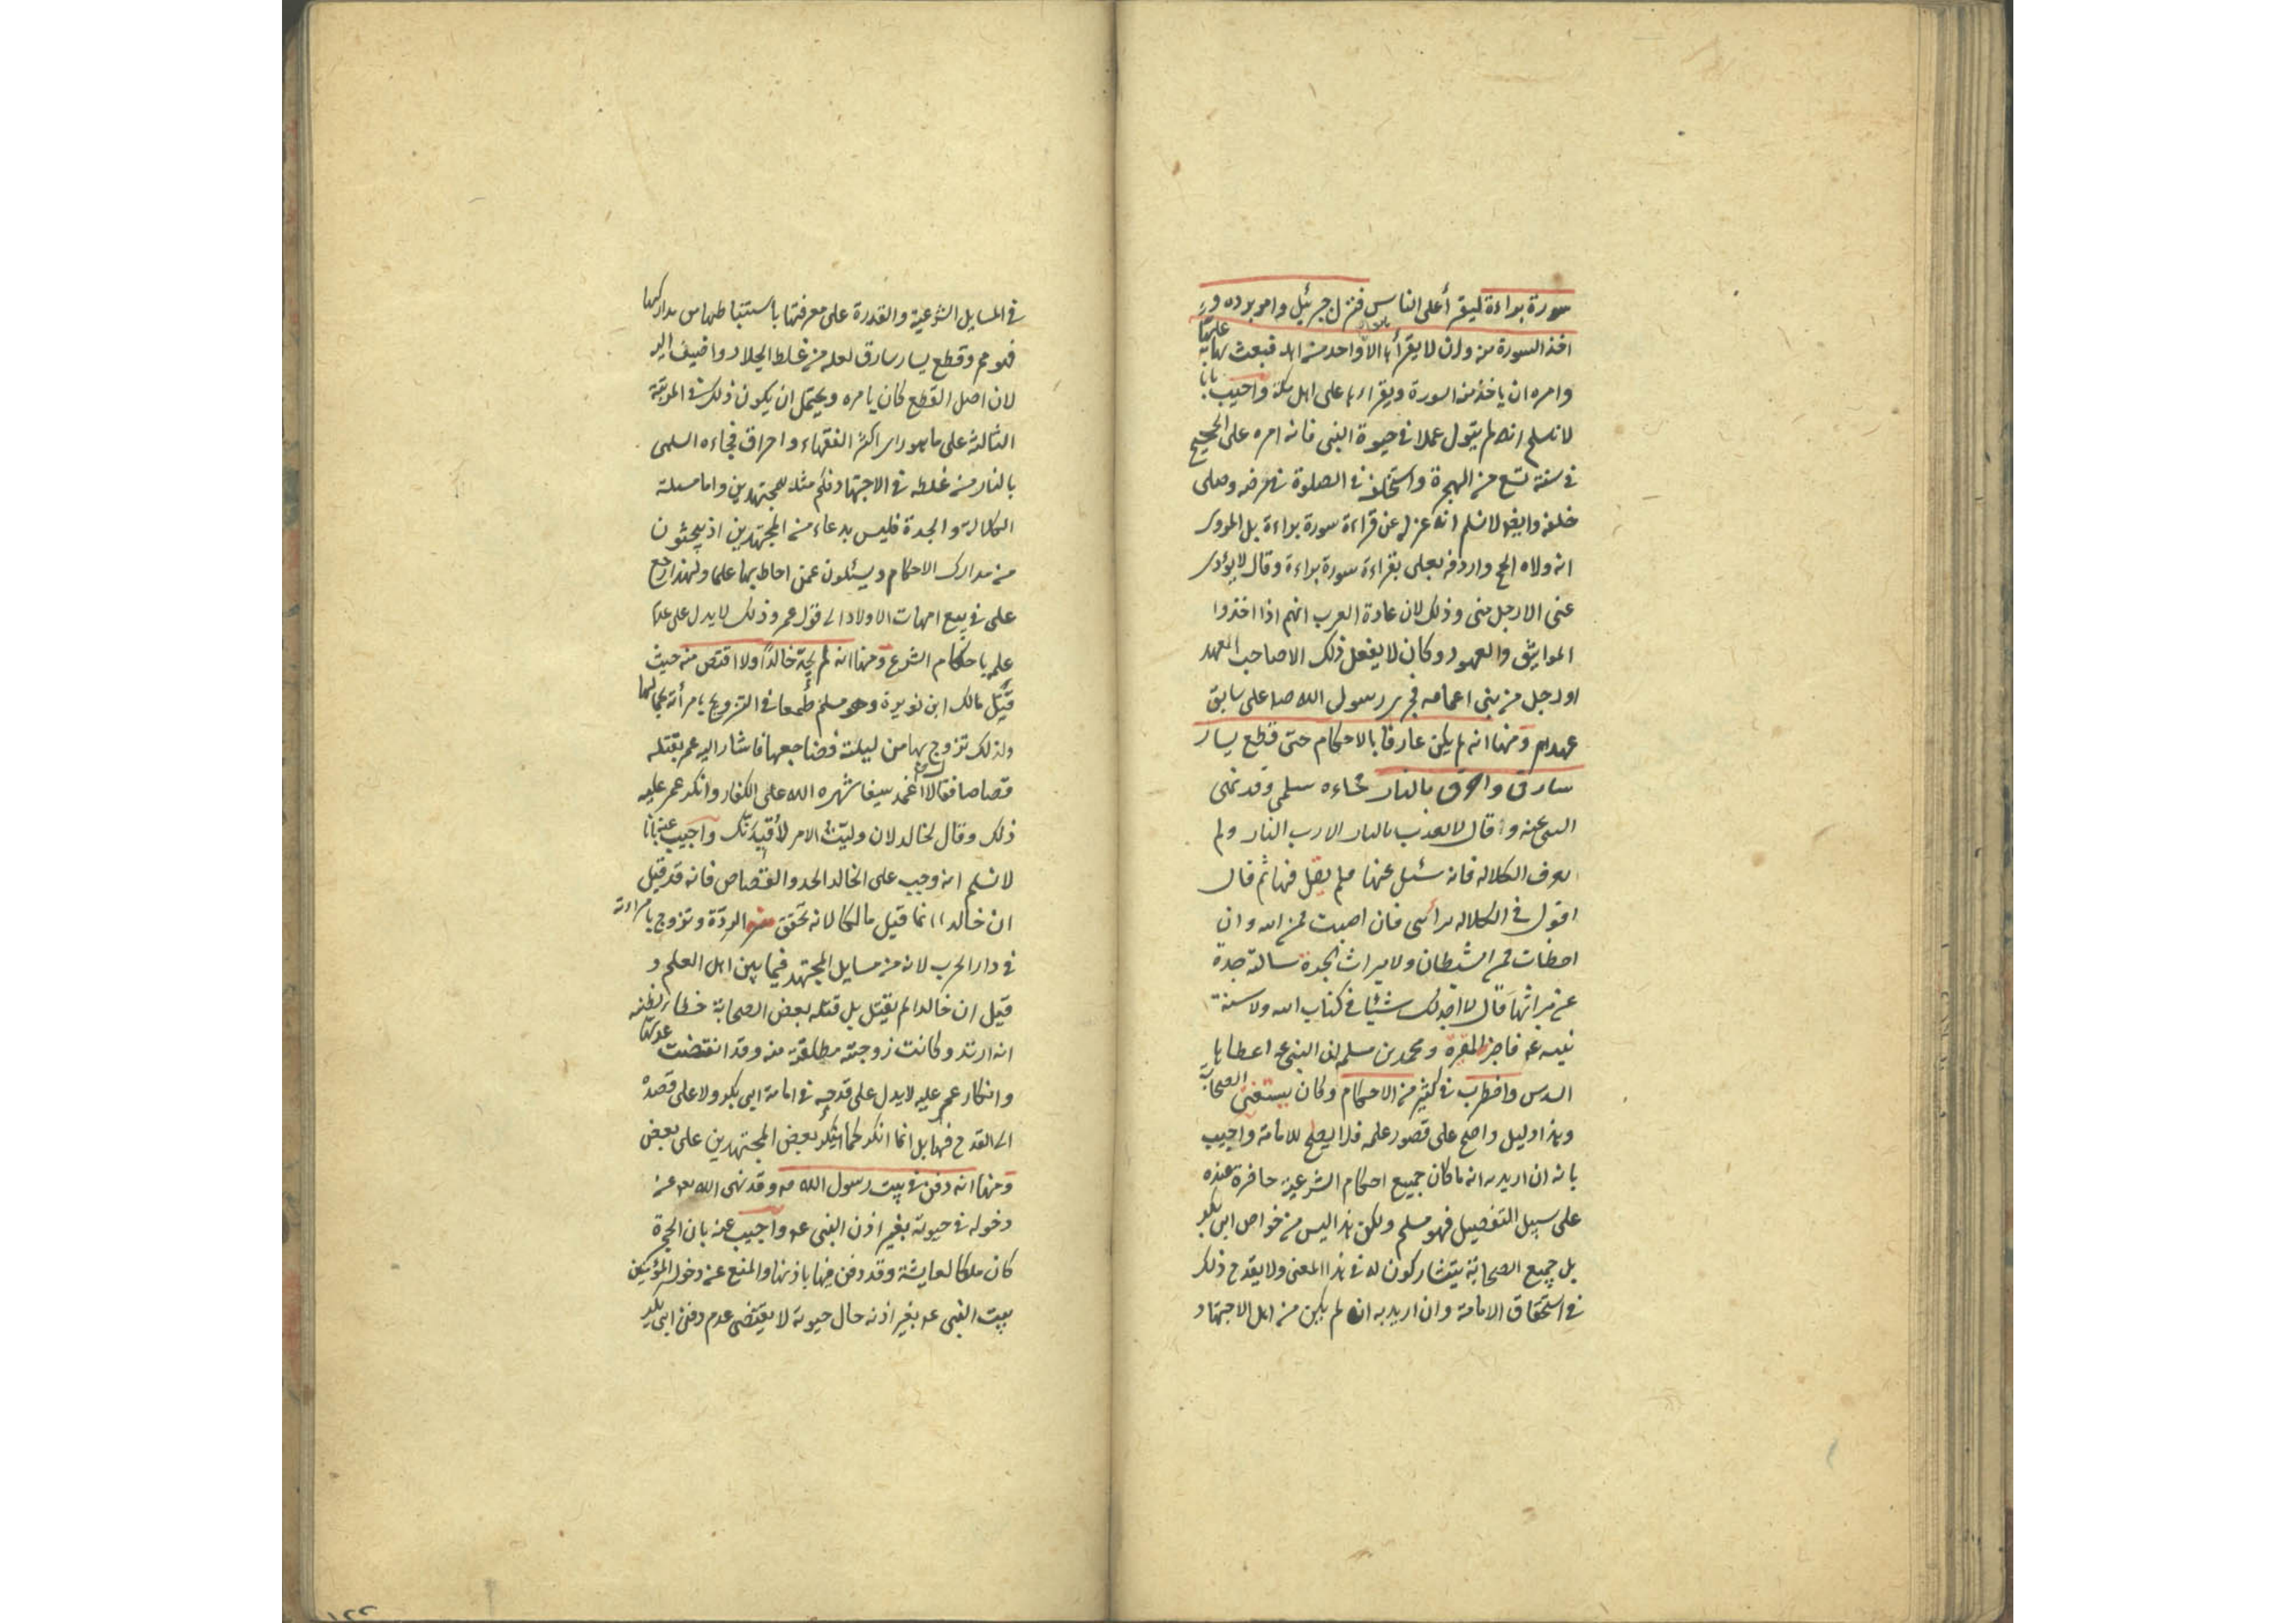 سورة براءة ليقرأ على الناس فنزل جبرئيل وامر برده و
اخذ السورة منه وان لا يقرأها الا واحد من اهله فبعث بها عليا
وامره ان ياخذ منه السورة ويقرأها على اهل مكة واجيب بانا
لا نسلم انه لم يتول عملا في حيوة النبى فانه امره على الحجيج
في سنة تسع من الهجرة واستخلفه في الصلوة في مرضه وصلى
خلفه وايضا لا نسلم انه عزله عن قراءة سورة براءة بل المروى
انه ولاه الحج واردفه بعلى بقراءة سورة براءة وقال لا يؤدى
عنى الا رجل منى وذلك لان عادة العرب انهم اذا اخذوا
المواثيق والعهود وكان لا يفعل ذلك الا صاحب العهد
او رجل من بنى اعمامه فجرى رسول الله صلى على سابق
عهدهم ومنها انه لم يكن عارفا بالاحكام حتى قطع يسار
سارق واحرق بالنار فجاءه سلمي وقد نهى
النبى عنه وقال لا يعذب بالنار الا رب النار ولم
يعرف الكلالة فانه سئل عنها فلم يقل فيها ثم قال
اقول في الكلالة برأيى فان اصبت فمن الله وان
اخطات فمن الشيطان ولا ميراث الجدة سالته جدة
عن ميراثها قال لا اجد لك شيئا في كتاب الله ولا سنة
نبيه عم فاخبر المغيرة ومحمد بن مسلمه ان النبى عم اعطاها
السدس واضطرب في كثير من الاحكام وكان يستفتى الصحابة
وهذا دليل واضح على قصور علمه فلا يصلح للامامة واجيب
بانه ان اريد به انه ما كان جميع احكام الشرعية حاضرة عنده
على سبيل التفصيل فهو مسلم ولكن هذا ليس من خواص ابى بكر
بل جميع الصحابة يتشاركون له في هذا المعنى ولا يقدح ذلك
في استحقاق الامامة وان اريد به انه لم يكن من اهل الاجتهاد
في المسايل الشرعية والقدرة على معرفتها باستنباطها من مداركها
فهو مم وقطع يسار سارق لعله من غلط الجلاد واضيف اليه
لان اصل القطع كان بامره ويحتمل ان يكون ذلك في المرتبة
الثالثة على ما هو راى اكثر الفقهاء واحراق فجاءه السلمى
بالنار من غلطه في الاجتهاد فكم مثله للمجتهدين واما مسلة
الكلالة والجدة فليس بدعاء من المجتهدين اذ يبحثون
من مدارك الاحكام ويسئلون عمن احاط بها علما ولهذا رجع
على في بيع امهات الاولاد الى قول عمر وذلك لا يدل على عدم
علمه باحكام الشرع ومنها انه لم يحد خالدا ولا اقتص منه حيث
قتل مالك ابن نويرة وهو مسلم طمعا في التزويج بامرأته لجمالها
ولذلك تزوج بها من ليلته وضاجعها فاشار اليه عمر بقتله
قصاصا فقال لا اغمد سيفا شهره الله على الكفار وانكر عمر عليه
ذلك وقال لخالد لان وليت الامر لأقيدنك واجيب عنه بانا
لا نسلم انه وجب على الخالد الحد والقصاص فانه قد قيل
ان خالدا انما قتل مالكا لانه تحقق منه الردة وتزوج بامراءته
في دار الحرب لانه من مسايل المجتهد فيها بين اهل العلم و
قيل ان خالدا لم يقتل بل قتله بعض الصحابة خطاء لظنه
انه ارتد وكانت زوجته مطلقة منه وقد انقضت عدتها
وانكار عمر عليه لا يدل على قدحه في امامة ابى بكر ولا على قصده
الى القدح فيها بل انما انكر كما ينكر بعض المجتهدين على بعض
ومنها انه دفن في بيت رسول الله صم وقد نهى الله تع عن
دخوله في حيوته بغير اذن النبى عم واجيب عنه بان الحجرة
كان ملكا لعايشة وقد دفن فيها باذنها والمنع عن دخول المؤمنين
بيت النبى عم بغير اذنه حال حيوته لا يقتضى عدم دفن ابى بكر
١٢٢